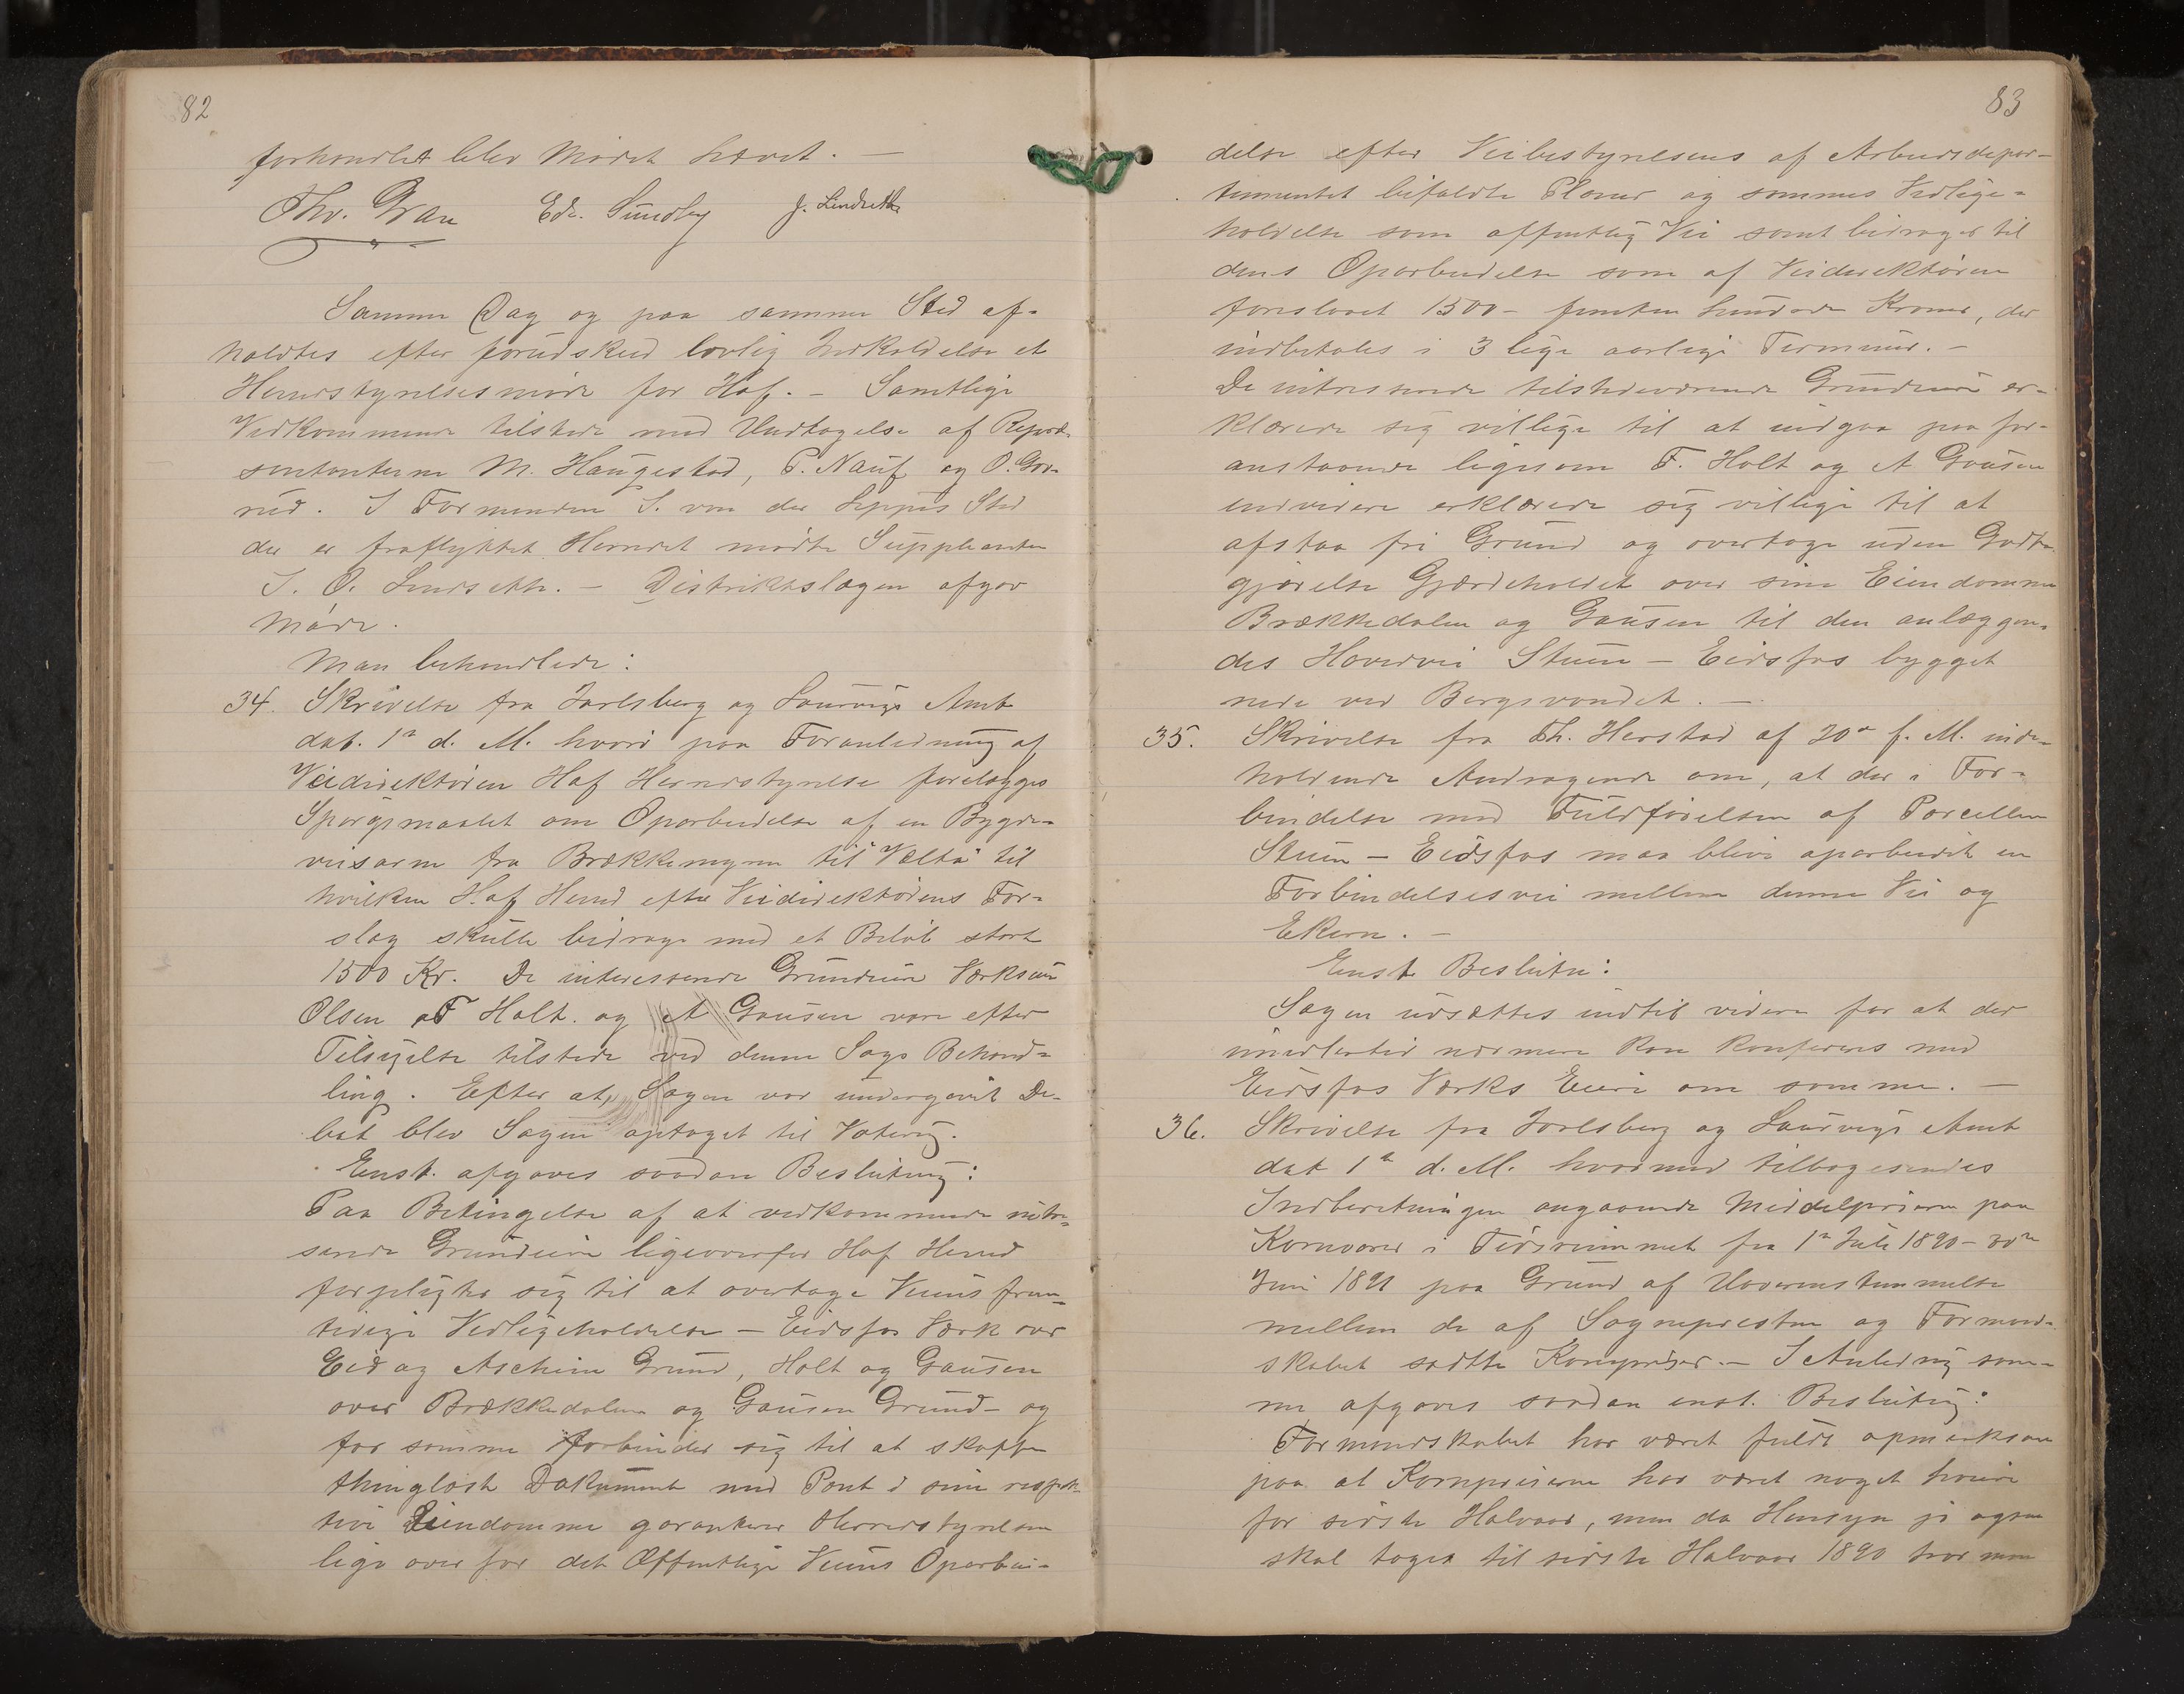 82
forhandlet blev Mødet hævet. —
Thv. Gran Edv. Sundby J. Lindseth
Samme Dag og paa samme Sted af-
holdtes efter forudskeed lovlig Indkaldelse et
Herredstyrelsesmøde for Hof. – Samtlige
Vedkommende tilstede med Undtagelse af Repræ-
sentanterne M. Haugestad, P. Nauf og O. Gor-
rud. I Formanden S. von der Lippes Sted
der er fraflyttet Herredet mødte Suppleanten
J. O. Lindseth. – Distriktslægen afgav
Møde.
Man behandlede:
34. Skrivelse fra Jarlsberg og Laurvigs Amt
dat. 1ste d. M. hvori paa Foranledning af
Veidirektøren Hof Herredstyrelse forelægges
Spørgsmaalet om Oparbeidelse af en Bygde-
veisarm fra Brækkemyren til "Vælta" til
hvilken Hof Herred efter Veidirektørens For-
slag skulle bidrage med et Beløb stort
1500 Kr. De interesserede Grundeiere Værkseier
Olsen F Holt. og A Gausen vare efter
Tilsigelse tilstede ved denne Sags Behand-
ling. Efter at Sagen var undergivet De-
bat blev Sagen optaget til Votering.
Enst. afgaves saadan Beslutning:
Paa Betingelse af at vedkommende intres-
serede Grundeiere ligeoverfor Hof Herred
forpligter sig til at overtage Veiens frem-
tidige Vedligeholdelse – Eidsfos Værk over
Eid og Aschim Grund, Holt og Gausen
over Brækkedalen og Gausen Grund – og
for samme forbinder sig til at skaffe
thinglæst Dokument med Pant i sine respek-
tive Eiendomme garanterer Herredstyrelsen
lige over for det Offentlige Veiens Oparbei-
83
delse efter Veibestyrelsens af Arbeidsdepar-
tementet bifaldte Planer og sammes Vedlige-
holdelse som offentlig Vei samt bidrager til
dens Oparbeidelse som af Veidirektøren
foreslaaet 1500 – femten hundrede Kroner, der
indbetales i 3 lige aarlige Terminer. –
De intresserede tilstedeværende Grundeiere er-
klærede sig villige til at indgaa paa for-
anstaaende ligesom F. Holt og A Gausen
endvidere erklærede sig villige til at
afstaa fri Grund og overtage uden Godt-
gjørelse Gjærdeholdet over sine Eiendomme
Brækkedalen og Gausen til den anlæggen-
des Hovedvei Steen – Eidsfos bygget
nede ved Bergsvandet. —
35. Skrivelse fra Th. Herstad af 20de f. M. inde-
holdende Andragende om, at der i For-
bindelse med Fuldførelsen af Parcellen
Steen – Eidsfos maa blive oparbeidet en
Forbindelsesvei mellem denne Vei og
Ekern. –
Enst Beslutn:
Sagen udsættes indtil videre for at der
imidlertid nærmere kan konfereres med
Eidsfos Værks Eiere om samme. —
36. Skrivelse fra Jarlsberg og Laurvigs Amt
dat 1ste d. M. hvormed tilbagesendes
Indberetningen angaaende Middelpriserne paa
Kornvarer i Tidsrummet fra 1ste Juli 1890 – 30te
Juni 1891 paa Grund af Uoverenstemmelse
mellem de af Sognepresten og Formand-
skabet sadte Kornpriser. – I Anledning sam-
me afgaves saadan enst. Beslutning:
Formandskabet har været fuldt opmerksom
paa at Kornpriserne har været noget høiere
for sidste Halvaar, men da Hensyn jo ogsaa
skal tages til sidste Halvaar 1890 tror man